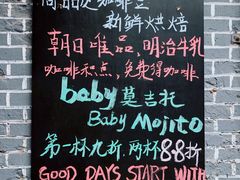 尚品定咖啡豆
新鲜烘焙
朝日唯品,明治牛乳
咖啡积点,免费得咖啡
baby莫吉托
Baby Mojito
第一杯九折,两杯88折
GOOD DAYS START WITH